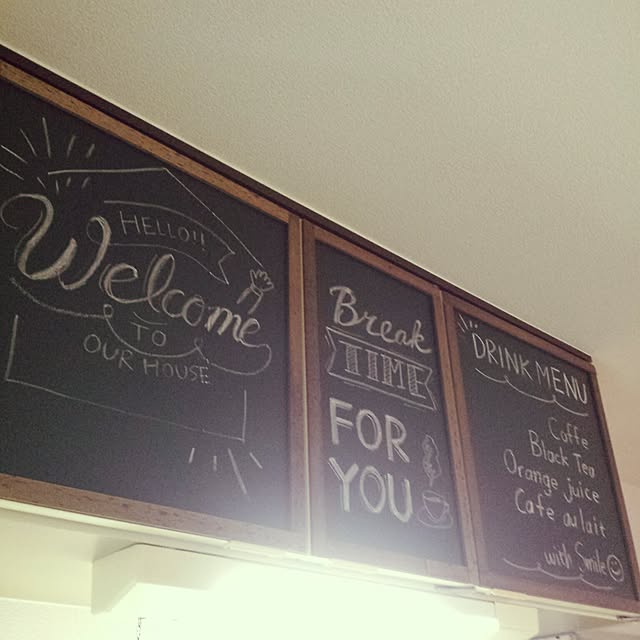 HELLO!!
Welcome
TO
OUR HOUSE
Break
TIME
FOR
YOU
DRINK MENU
Coffe
Black Tea
Orange juice
Cafe au lait
with Smile